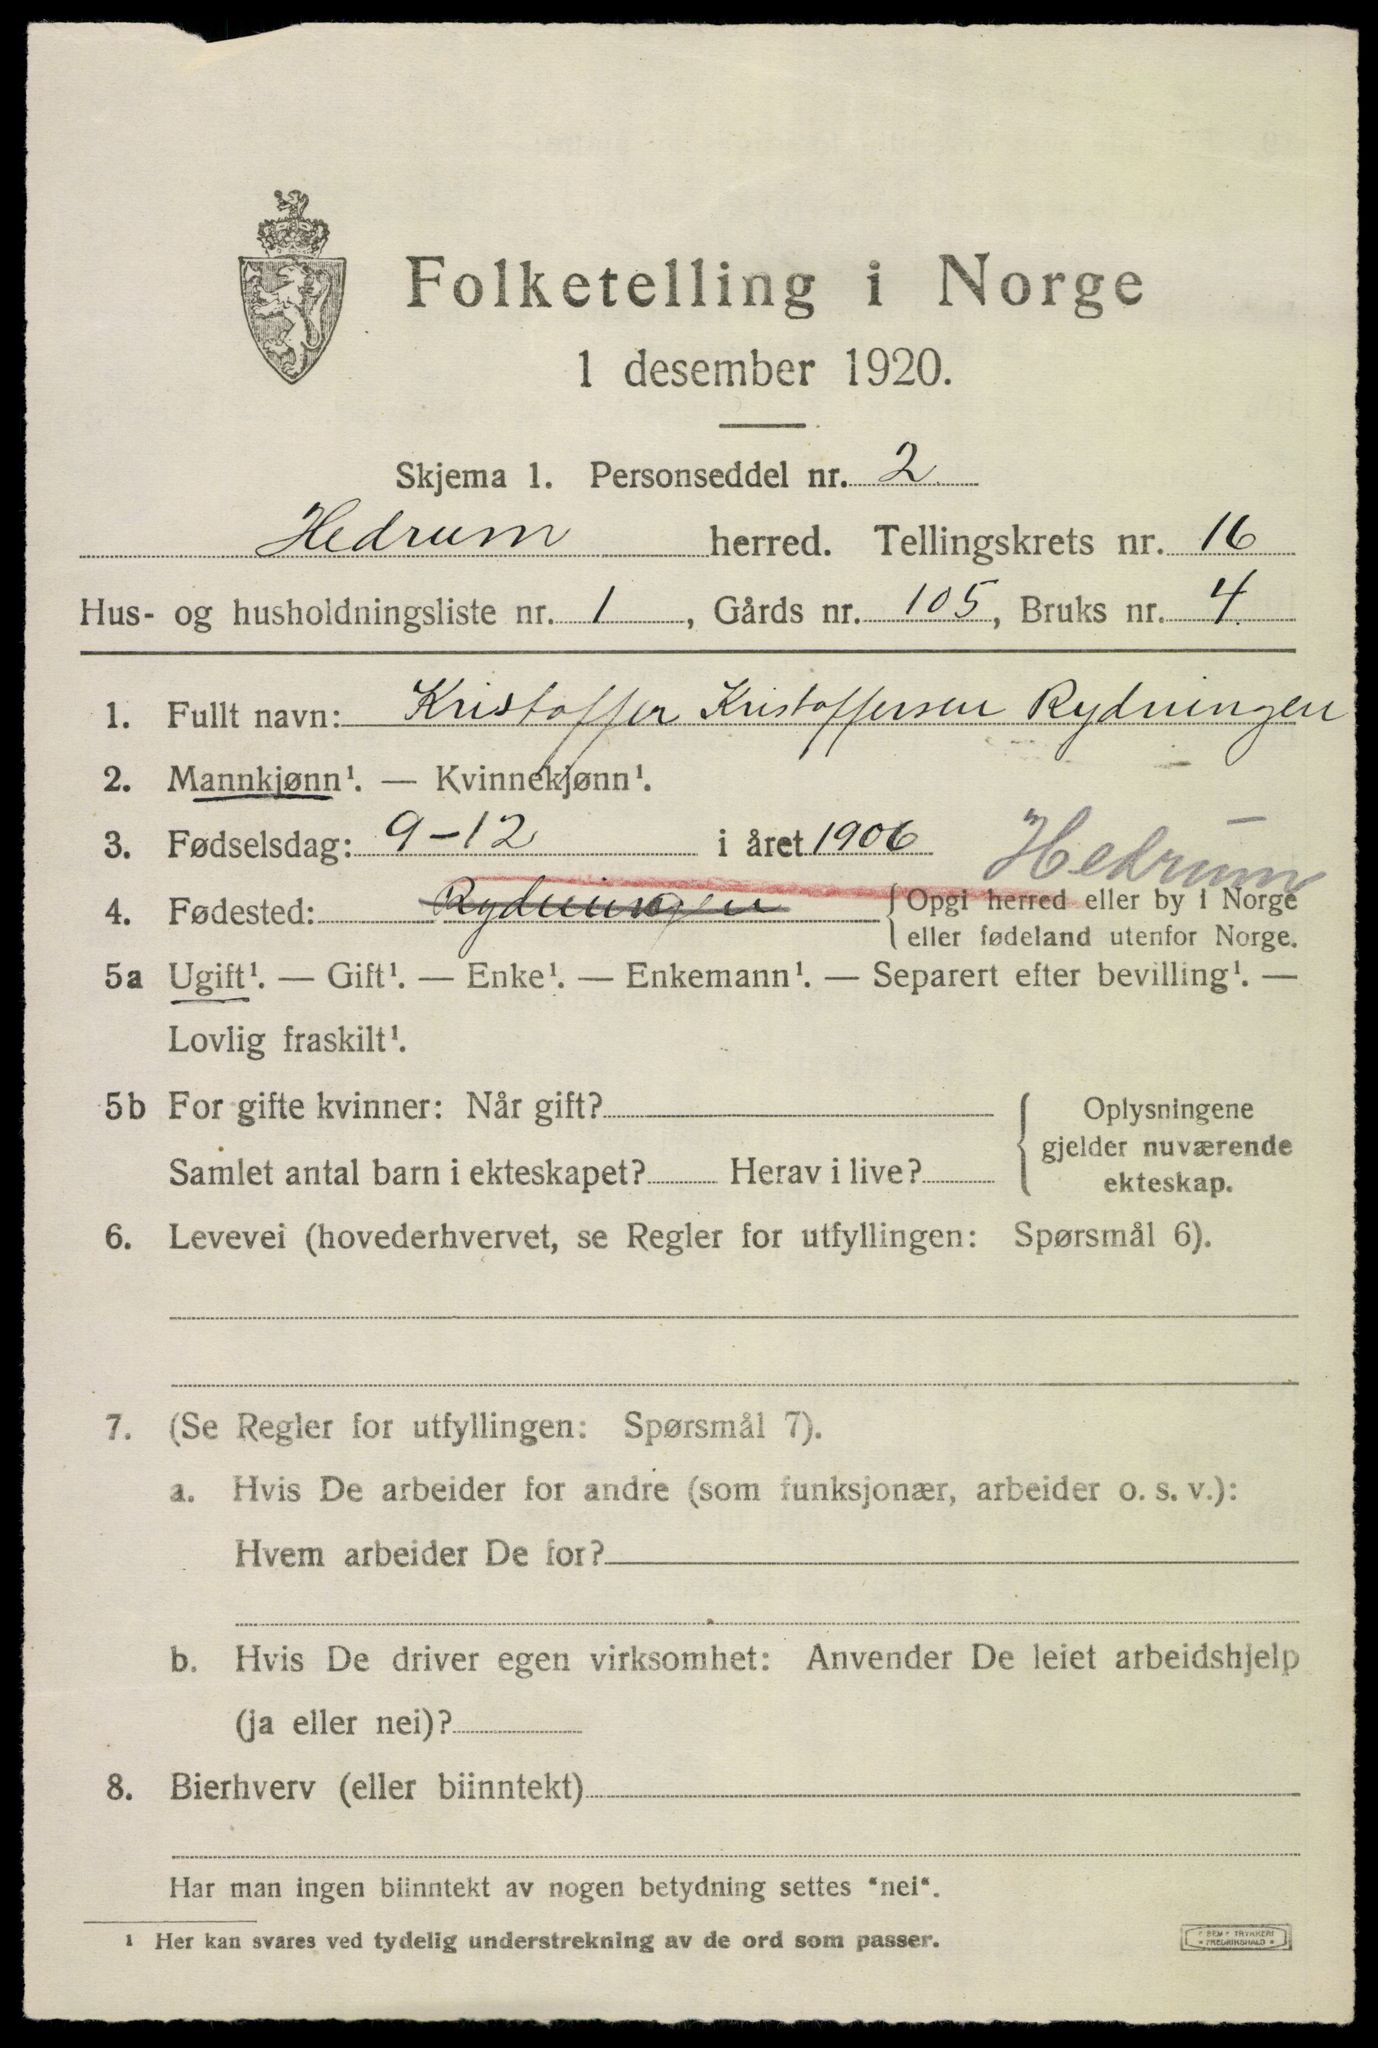 Folketelling i Norge
1 desember 1920.
Skjema 1. Personseddel nr. 2
Hedrum herred. Tellingskrets nr. 16
Hus- og husholdningsliste nr. 1, Gårds nr. 105, Bruks nr. 4.
1. Fullt navn: Kristoffer Kristoffersen Rydningen
2. Mannkjønn¹. — Kvinnekjønn¹.
3. Fødselsdag: 9-12 i året 1906 Hedrum
4. Fødested: Rydningen { Opgi herred eller by i Norge
eller fødeland utenfor Norge.
5a Ugift¹. — Gift¹. — Enke¹. — Enkemann¹. — Separert efter bevilling¹. —
Lovlig fraskilt¹.
5b For gifte kvinner: Når gift? { Oplysningene
gjelder nuværende
Samlet antal barn i ekteskapet? Herav i live? ekteskap.
6. Levevei (hovederhvervet, se Regler for utfyllingen: Spørsmål 6).
7. (Se Regler for utfyllingen: Spørsmål 7).
a. Hvis De arbeider for andre (som funksjonær, arbeider o. s. v.):
Hvem arbeider De for?
b. Hvis De driver egen virksomhet: Anvender De leiet arbeidshjelp
(ja eller nei)?
8. Bierhverv (eller biinntekt)
Har man ingen biinntekt av nogen betydning settes "nei".
¹ Her kan svares ved tydelig understrekning av de ord som passer.
TRYKKERI
FREDRIKSHALD